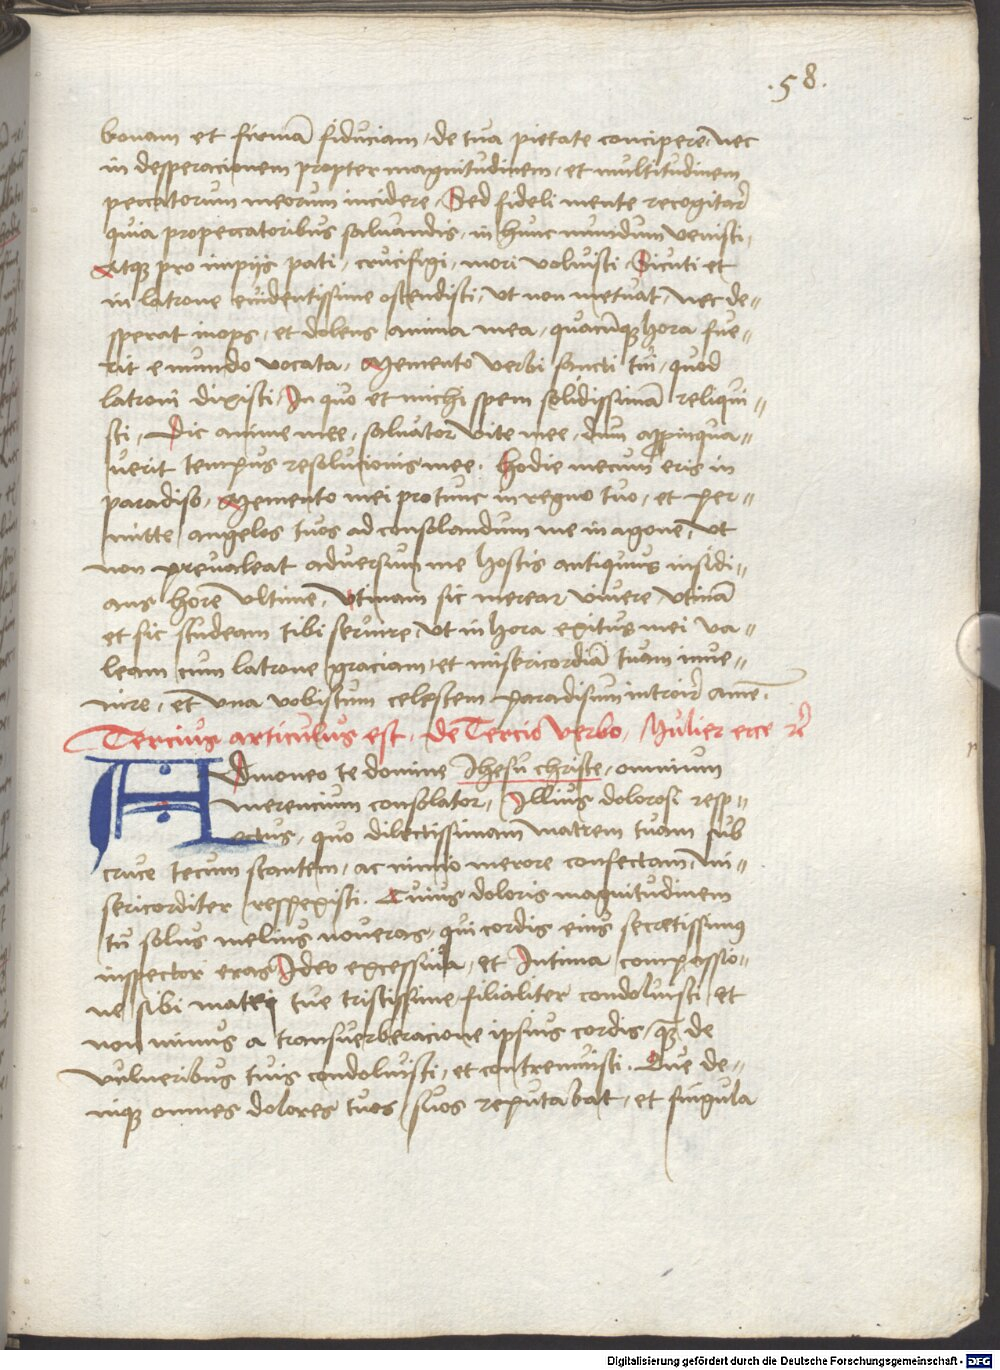 .58.
bonam et firmā fiduciam, de tua pietate concipere, nec
in desperacionem propter magnitudinem, et multitudinem
peccatorum meorum incidere, Sed fideli mente recogitare
quia pro peccatoribus saluandis, in hunc mundum venisti,
Atque pro impijs pati, crucifigi, mori voluisti, Sicuti et
in latrone euidentissime ostendisti, vt non metuat, nec de=
sperat inops, et dolens anima mea, quacūque hora fue=
rit e mundo vocata, Memento verbi sancti tui, quod
latroni dixisti, In quo et michi spem solidissimā reliqui=
sti, Dic anime mee, saluator vite mee, dum appinqua=
uerit tempus resolucionis mee. hodie mecum eris in
paradiso, Memento mei pro tunc in regno tuo, et per=
mitte angelos tuos ad consolandum me in agone, vt
non preualeat aduersum me hostis antiquus insidi=
ans hore vltime, vtinam sic merear viuere, vtinā
et sic studeam tibi seruire, vt in hora exitus mei va=
leam cum latrone graciam, et misericordiā tuam inue=
nire, et vna vobiscum celestem paradisum introire amē.
Tercius articulus est, de Tercio verbo, Mulier ecce
Admoneo te domine Jhesu christe, omnium
merencium consolator, Illius dolorosi resp=
ectus, quo dilectissimam matrem tuam sub
cruce tecum stantem, ac nimio merore confectam, mi=
sericorditer respexisti. Cuius doloris magnitudinem
tu solus melius noueras, qui cordis eius secretissimus
inspector eras, Ideo excessiua, et Intima compassio=
ne sibi matri tue tristissime filialiter condoluisti et
non minus a transuerberacione ipsius cordis, quam de
vulneribus tuis condoluisti, et contremuisti. Que de=
nique omnes dolores tuos, suos reputabat, et singula
Digitalisierung gefördert durch die Deutsche Forschungsgemeinschaft - DFG